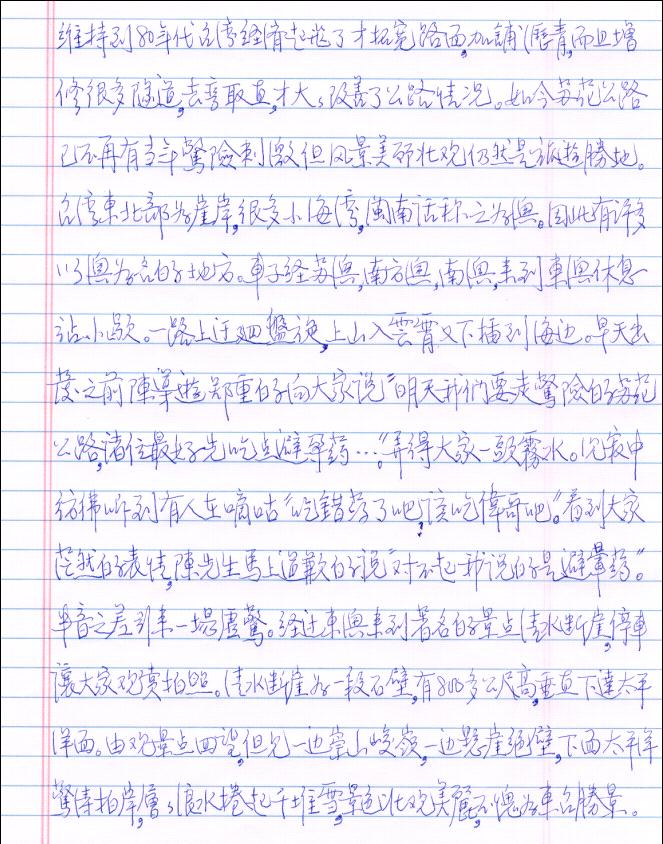 維持到80年代台湾经濟起飛了才拓宽路面,加舖瀝青,而且增
修很多隧道,去弯取直,才大大改善了公路情况。如今苏花公路
已不再有当年驚險刺激但风景美丽壮观仍然是旅遊勝地。
台湾東北部为崖岸,很多小海湾,闽南话称之为澳。因此有许多
以澳为名的地方。車子经苏澳,南方澳,南澳,来到東澳休息
站小歇。一路上迂廻盤旋,上山入雲霄又下插到海边。早天出
發之前陳導遊郑重的向大家说"明天我們要走驚險的苏花
公路,诸位最好先吃点避孕药…"弄得大家一頭霧水。沉寂中
彷彿听到有人在嘀咕"吃错药了吧,该吃偉哥吧。"看到大家
茫然的表情,陳先生馬上道歉的说"对不起我说的是避暈药。"
半音之差引来一場虚驚。经过東澳来到著名的景点清水断崖,停車
讓大家观賞拍照。清水断崖为一段石壁,有800多公尺高,垂直下達太平
洋面。由观景点四望,但见一边崇山峻嶺,一边懸崖絕壁,下面太平洋
驚涛拍岸,層層浪水捲起千堆雪,景色壮观美麗,不愧为東台勝景。